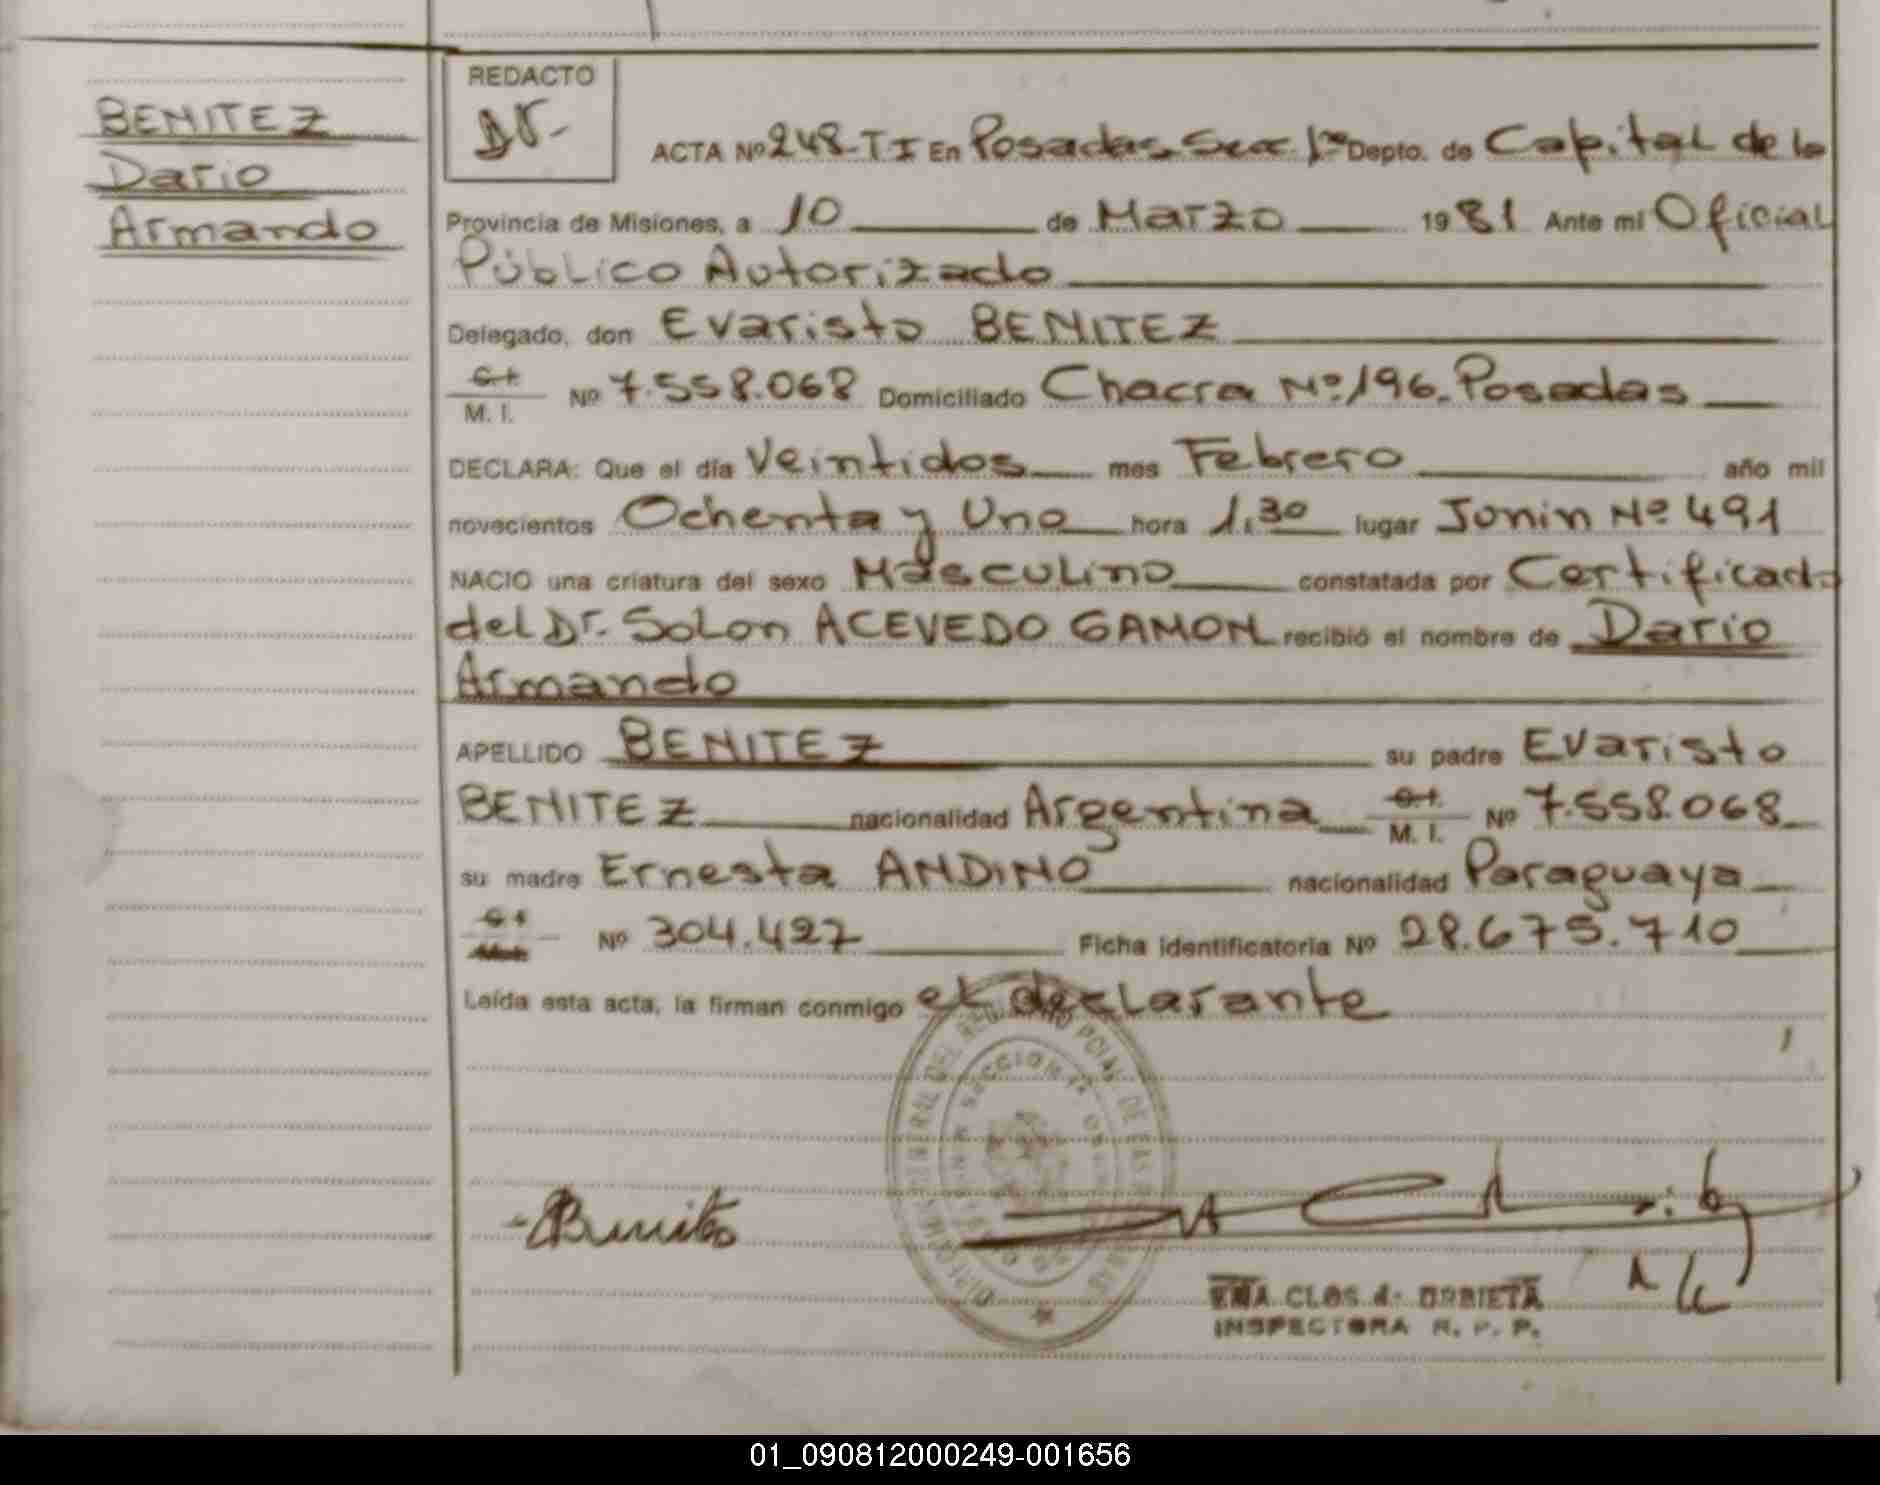 BENITEZ
Dario
Armando
REDACTO
ACTA Nº 248-T I En Posadas Secc 1ra Depto. de Capital de la
Provincia de Misiones, a 10 de Marzo 1981 Ante mi Oficial
Público Autorizado
Delegado, don Evaristo BENITEZ
C.I.
M. I. Nº 7.558.068 Domiciliado Chacra Nº 196. Posadas
DECLARA: Que el día Veintidos mes Febrero año mil
novecientos Ochenta y Uno hora 1,30 lugar Junin Nº 491
NACIO una criatura del sexo Masculino constatada por Certificado
del Dr. Solon ACEVEDO GAMON recibió el nombre de Dario
Armando
APELLIDO BENITEZ su padre Evaristo
BENITEZ nacionalidad Argentina C.I. M. I. Nº 7.558.068
su madre Ernesta ANDINO nacionalidad Paraguaya
C.I. Nº 304.427 Ficha identificatoria Nº 28.675.710
Leída esta acta, la firman conmigo el declarante
SECCION 1ª
EMA CLOS d. URBIETA
INSPECTORA R. P. P.
01_090812000249-001656